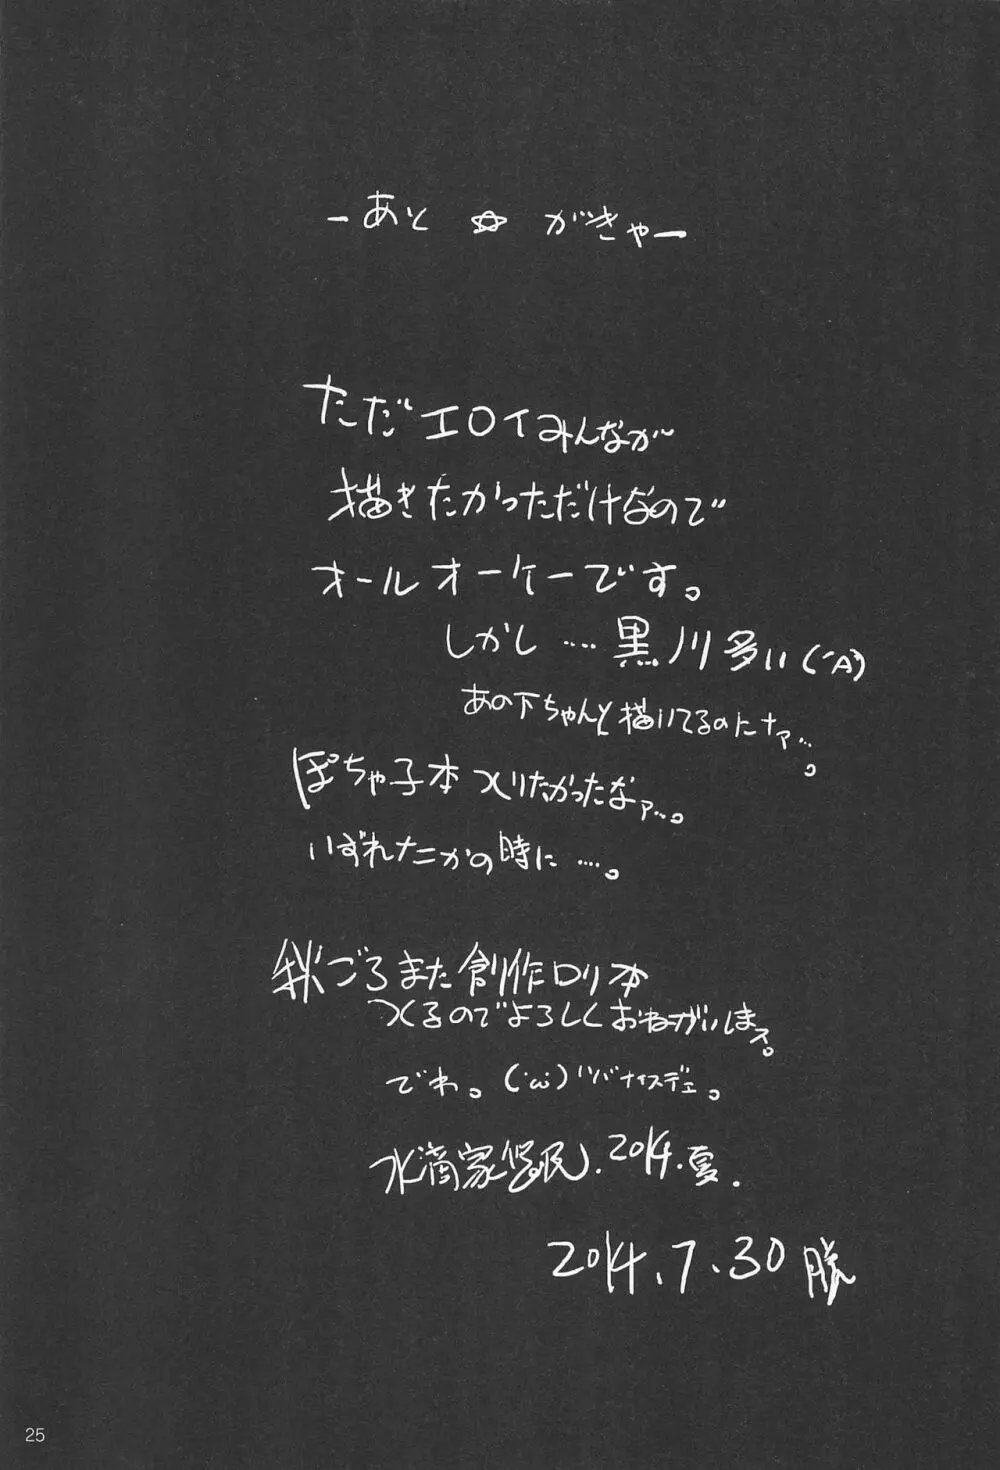 -あと☆がきゃ-
ただエロイみんなが
描きたかっただけなので
オールオーケーです。
しかし…黒川多い(´A`)
あの下ちゃんと描いてるのにナァ…。
ぽちゃ子本つくりたかったなァ…。
いずれナニかの時に…。
秋ごろまた創作ロリ本
つくるのでよろしくおねがいしまス。
でわ。(´ω`)ノシバナイスデェ。
水滴家悠民.2014.夏.
2014.7.30
25